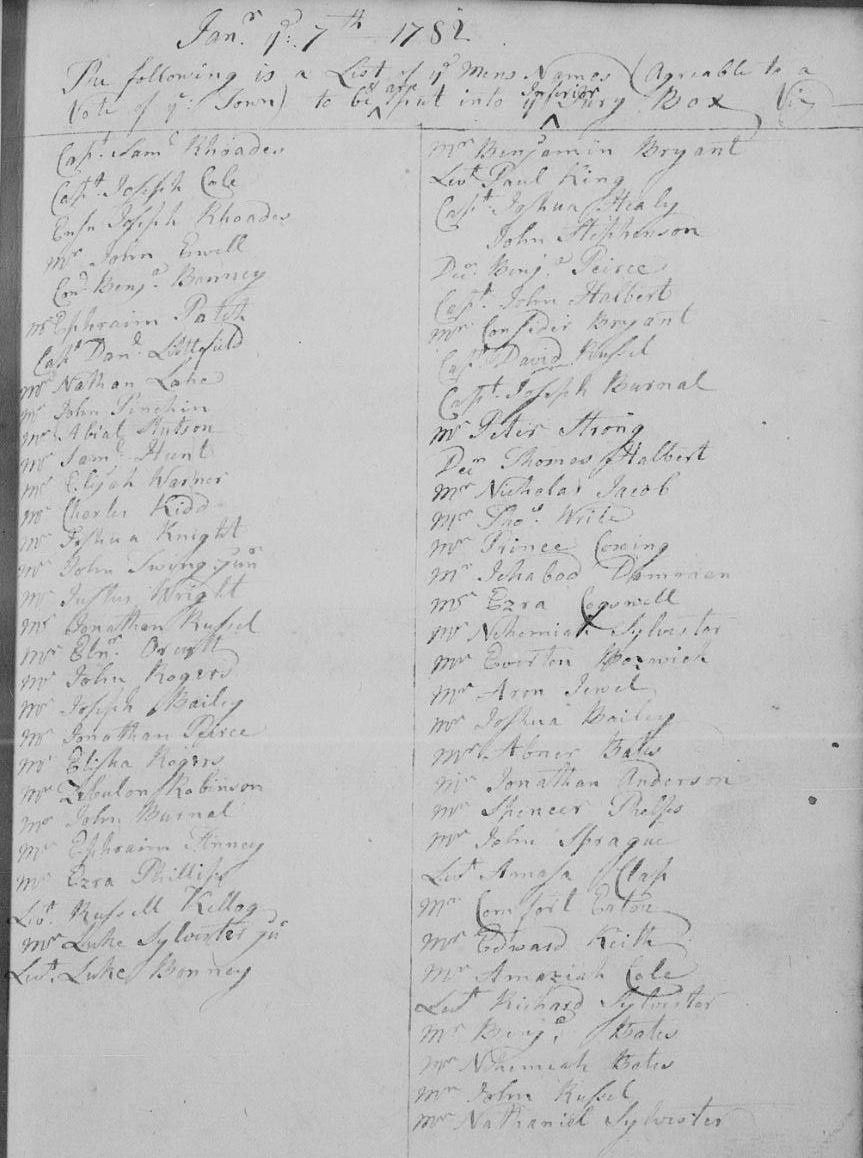 Janr. ye: 7th 1782
The following is a List of ye Mens Names (Agreable to a
Vote of ye: Town) to be put into ye Inferior Jury Box Viz
Capt. Saml Rhoades
Capt. Joseph Cole
Ensn Joseph Rhoades
Mr John Ewell
Benja. Bonney
Mr Ephraim Patch
Capt Danl Littlefield
Mr Nathan Lane
Mr John Pinchin
Mr Abial Stutson
Mr Saml. Hunt
Mr Elijah Warner
Mr Charles Kidd
Mr Joshua Knight
Mr John Swing junr
Mr Justus Wright
Mr Jonathan Russel
Mr Ebnr. Orcutt
Mr John Rogers
Mr Joseph Bailey
Mr Jonathan Peirce
Mr Elisha Rogers
Mr Zebulon Robinson
Mr John Burnal
Mr Ephraim Finney
Mr Ezra Phillips
Lieut. Russell Kellog
Mr Luke Sylvester jur
Lieut. Luke Bonney
Mr Benjamin Bryant
Lieut Paul King
Capt. Joshua Healy
John Stephenson
Decn. Benja. Peirce
Capt. John Halbert
Mr Consider Bryant
Capt. David Russel
Capt. Joseph Burnal
Mr Peter Strong
Decn Thomas Halbert
Mr Nicholas Jacob
Mr Thos. Write
Mr Prince Cowing
Mr Ichabod Dammaen
Mr Ezra Cogswell
Mr Nehemiah Sylvester
Mr Everton
Mr Aron Jewel
Mr Joshua Bailey
Mr Abner Bates
Mr Jonathan Anderson
Mr Spencer Phelps
Mr John Sprague
Lieut Amasa Clap
Mr Comfort Eaton
Mr Edward Keith
Mr Amaziah Cole
Lieut Richard Sylvester
Mr Benja. Bates
Mr Nehemiah Bates
Mr John Russel
Mr Nathaniel Sylvester